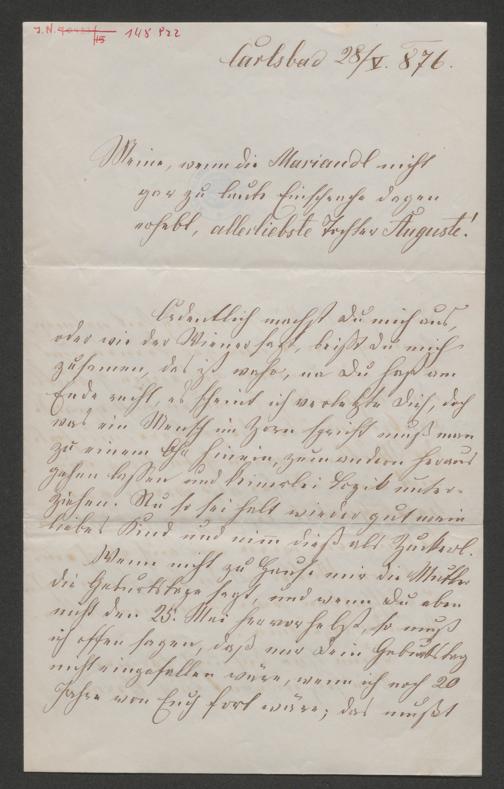 J.N. 148922
Carlsbad 28/V. 876.
Meine, wenn die Mariandl nicht
gar zu laute Einsprache dagegen
erhebt, allerliebste Tochter Auguste!
Ordentlich machst Du mich aus,
oder wie der Wiener sagt, beißt Du mich
zusamen, das ist wahr, na Du hast am
Ende recht, es scheint ich verletzte Dich, doch
was ein Mensch im Zorn spricht muß man
zu einem Ohr hinein, zum andern heraus
gehen lassen und keinerlei Logik unter-
ziehen. Nu so sei halt wieder gut mein
liebes Kind und nim dieß als Zuckerl.
Wenn nicht zu Hause mir die Mutter
die Geburtstage sagt, und wenn Du eben
nicht den 25. Mai hervorhebst, so muß
ich offen sagen, daß mir Dein Geburtstag
nicht eingefallen wäre, wenn ich noch 20
Jahre von Euch fort wäre; das mußt